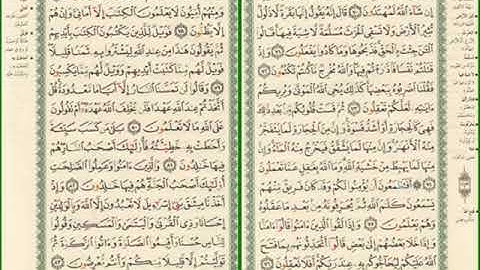 إِن شَاءَ اللَّهُ لَمُهْتَدُونَ ٧٠ قَالَ إِنَّهُ يَقُولُ إِنَّهَا بَقَرَةٌ لَّا ذَلُولٌ
تُثِيرُ الْأَرْضَ وَلَا تَسْقِي الْحَرْثَ مُسَلَّمَةٌ لَّا شِيَةَ فِيهَا قَالُوا
الْآنَ جِئْتَ بِالْحَقِّ فَذَبَحُوهَا وَمَا كَادُوا يَفْعَلُونَ ٧١ وَإِذْ
قَتَلْتُمْ نَفْسًا فَادَّارَأْتُمْ فِيهَا وَاللَّهُ مُخْرِجٌ مَّا كُنتُمْ تَكْتُمُونَ ٧٢
فَقُلْنَا اضْرِبُوهُ بِبَعْضِهَا كَذَلِكَ يُحْيِ اللَّهُ الْمَوْتَى وَيُرِيكُمْ
آيَاتِهِ لَعَلَّكُمْ تَعْقِلُونَ ٧٣ ثُمَّ قَسَتْ قُلُوبُكُم مِّن بَعْدِ ذَلِكَ
فَهِيَ كَالْحِجَارَةِ أَوْ أَشَدُّ قَسْوَةً وَإِنَّ مِنَ الْحِجَارَةِ لَمَا يَتَفَجَّرُ
مِنْهُ الْأَنْهَارُ وَإِنَّ مِنْهَا لَمَا يَشَّقَّقُ فَيَخْرُجُ مِنْهُ الْمَاءُ وَإِنَّ
مِنْهَا لَمَا يَهْبِطُ مِنْ خَشْيَةِ اللَّهِ وَمَا اللَّهُ بِغَافِلٍ عَمَّا تَعْمَلُونَ
٧٤ أَفَتَطْمَعُونَ أَن يُؤْمِنُوا لَكُمْ وَقَدْ كَانَ فَرِيقٌ مِّنْهُمْ
يَسْمَعُونَ كَلَامَ اللَّهِ ثُمَّ يُحَرِّفُونَهُ مِن بَعْدِ مَا عَقَلُوهُ
وَهُمْ يَعْلَمُونَ ٧٥ وَإِذَا لَقُوا الَّذِينَ آمَنُوا قَالُوا آمَنَّا
وَإِذَا خَلَا بَعْضُهُمْ إِلَى بَعْضٍ قَالُوا أَتُحَدِّثُونَهُم بِمَا فَتَحَ
اللَّهُ عَلَيْكُمْ لِيُحَاجُّوكُم بِهِ عِندَ رَبِّكُمْ أَفَلَا تَعْقِلُونَ ٧٦
وَمِنْهُمْ أُمِّيُّونَ لَا يَعْلَمُونَ الْكِتَابَ إِلَّا أَمَانِيَّ وَإِنْ هُمْ
إِلَّا يَظُنُّونَ ٧٨ فَوَيْلٌ لِّلَّذِينَ يَكْتُبُونَ الْكِتَابَ بِأَيْدِيهِمْ
ثُمَّ يَقُولُونَ هَذَا مِنْ عِندِ اللَّهِ لِيَشْتَرُوا بِهِ ثَمَنًا قَلِيلًا
فَوَيْلٌ لَّهُم مِّمَّا كَتَبَتْ أَيْدِيهِمْ وَوَيْلٌ لَّهُم مِّمَّا يَكْسِبُونَ
٧٩ وَقَالُوا لَن تَمَسَّنَا النَّارُ إِلَّا أَيَّامًا مَّعْدُودَةً قُلْ
أَتَّخَذْتُمْ عِندَ اللَّهِ عَهْدًا فَلَن يُخْلِفَ اللَّهُ عَهْدَهُ أَمْ تَقُولُونَ
عَلَى اللَّهِ مَا لَا تَعْلَمُونَ ٨٠ بَلَى مَن كَسَبَ سَيِّئَةً
وَأَحَاطَتْ بِهِ خَطِيئَتُهُ فَأُولَئِكَ أَصْحَابُ النَّارِ هُمْ
فِيهَا خَالِدُونَ ٨١ وَالَّذِينَ آمَنُوا وَعَمِلُوا الصَّالِحَاتِ
أُولَئِكَ أَصْحَابُ الْجَنَّةِ هُمْ فِيهَا خَالِدُونَ ٨٢ وَإِذْ
أَخَذْنَا مِيثَاقَ بَنِي إِسْرَائِيلَ لَا تَعْبُدُونَ إِلَّا اللَّهَ وَبِالْوَالِدَيْنِ
إِحْسَانًا وَذِي الْقُرْبَى وَالْيَتَامَى وَالْمَسَاكِينِ وَقُولُوا
لِلنَّاسِ حُسْنًا وَأَقِيمُوا الصَّلَاةَ وَآتُوا الزَّكَاةَ ثُمَّ
تَوَلَّيْتُمْ إِلَّا قَلِيلًا مِّنكُمْ وَأَنتُم مُّعْرِضُونَ ٨٣